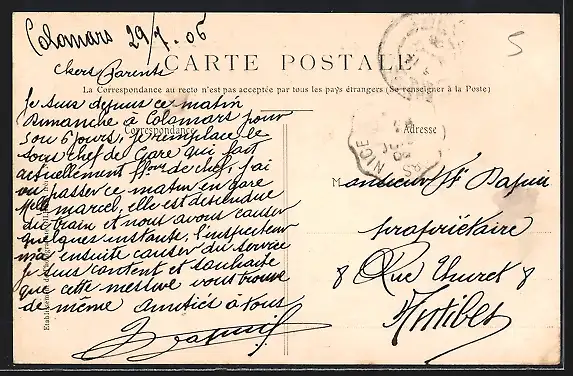 Colomars 29/7.06
CARTE POSTALE
5
chers Parents
La Correspondance au recto n'est pas acceptée par tous les pays étrangers (Se renseigner à la Poste)
Correspondance
Adresse
Je suis depuis ce matin
Dimanche à Colomars pour
5 ou 6 jours, je remplace le
Sous chef de Gare qui fait
actuellement ffons de chef, j'ai
vu passer ce matin en gare
Melle marcel, elle est descendue
du train et nous avons causer
quelques instants, l'inspecteur
m'a ensuite causer du service
je suis content et souhaite
que cette mesure vous trouve
de même amitiés à vous
NICE
Monsieur
propriétaire
8 Rue Thuret 8
Antibes